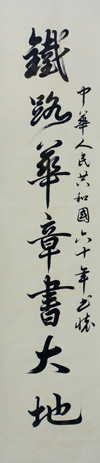 中華人民共和國六十年書懷
鐵路華章書大地